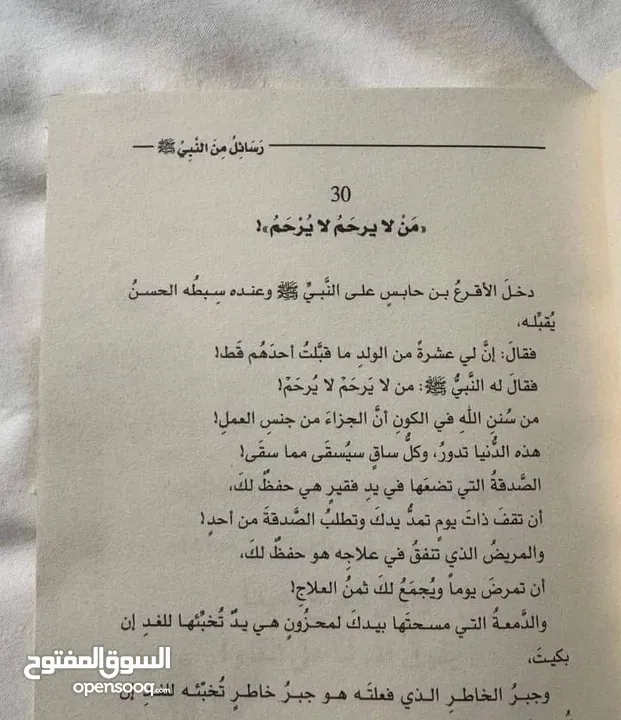 رَسَائِلُ مِنَ النَّبِيِّ ﷺ
30
«مَنْ لا يرحَمُ لا يُرْحَمُ»!
دخلَ الأقرعُ بن حابسٍ على النَّبيِّ ﷺ وعنده سِبطُه الحسنُ
يُقبِّله،
فقالَ: إنَّ لي عشرةً من الولدِ ما قبَّلتُ أحدَهُم قَط!
فقالَ له النَّبيُّ ﷺ: من لا يَرحَمْ لا يُرحَمْ!
من سُننِ اللهِ في الكونِ أنَّ الجزاءَ من جنسِ العملِ!
هذه الدُّنيا تدورُ، وكلُّ ساقٍ سيُسقَى مما سقَى!
الصَّدقةُ التي تضعَها في يدِ فقيرٍ هي حفظٌ لكَ،
أن تقفَ ذاتَ يومٍ تمدُّ يدكَ وتطلبُ الصَّدقةَ من أحدٍ!
والمريضُ الذي تنفقُ في علاجِه هو حفظٌ لكَ،
أن تمرضَ يوماً ويُجمَعُ لكَ ثمنُ العلاجِ!
والدَّمعةُ التي مسحتَها بيدكَ لمحزُونٍ هي يدٌ تُخبِّئها للغدِ إن
بكيتَ،
وجبرُ الخاطرِ الذي فعلتَه هو جبرُ خاطرٍ تُخبِّئه للغدِ إن
السوق المفتوح
opensooq.com